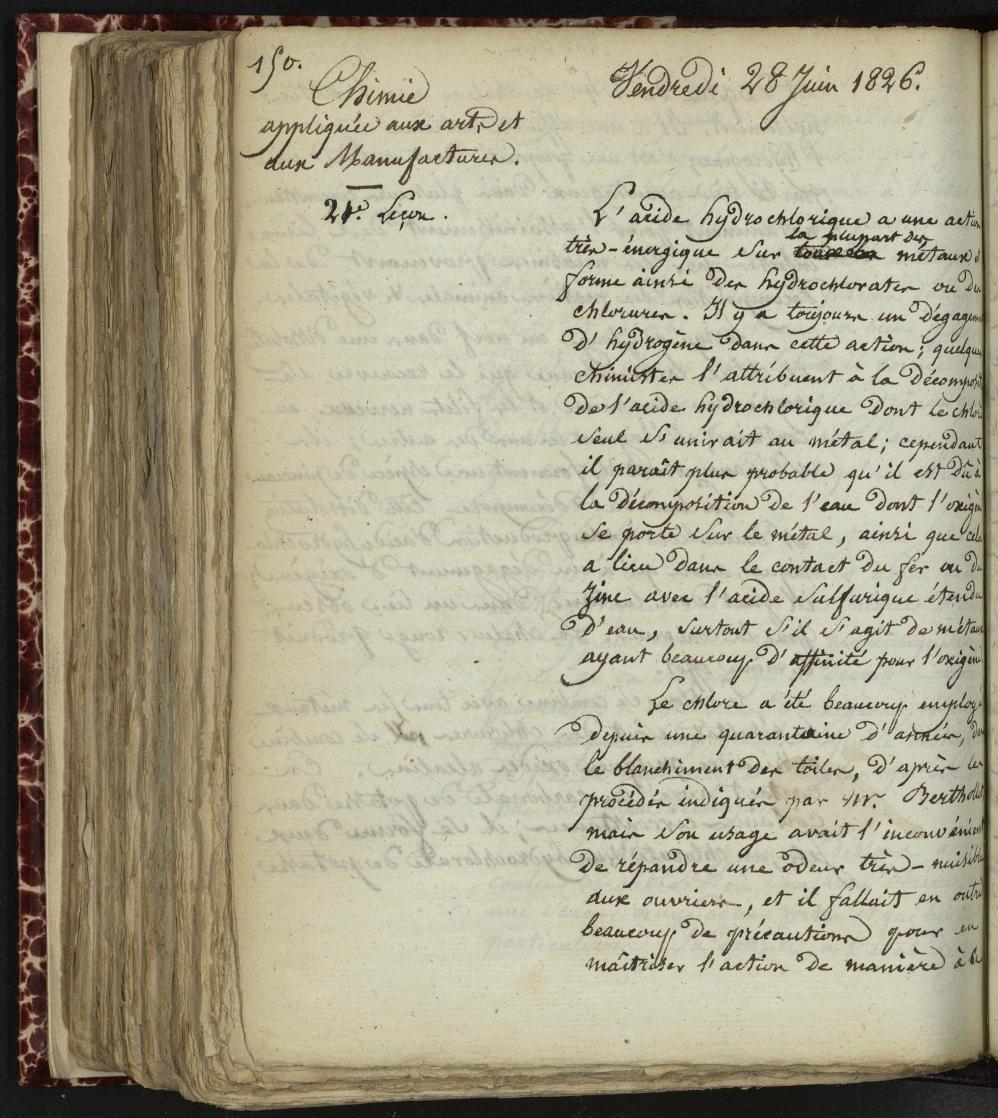 150.
Chimie
appliquée aux arts et
aux Manufactures.
21e Leçon.
Vendredi 28 Juin 1826.
L'acide hydrochlorique a une action
très-énergique sur la plupart des métaux &
forme ainsi des hydrochlorates ou du
chlorures. Il y a toujours un dégagem
d'hydrogène dans cette action; quelque
chimistes l'attribuent à la décomposit
de l'acide hydrochlorique dont le chlor
seul s'unirait au métal; cependant
il paraît plus probable qu'il est dû à
la décomposition de l'eau dont l'oxigèn
se porte sur le métal, ainsi que cela
a lieu dans le contact du fer ou du
zinc avec l'acide sulfurique étendu
d'eau, surtout s'il s'agit de métau
ayant beaucoup d'affinité pour l'oxigène
Le chlore a été beaucoup employé
depuis une quarantaine d'années, da
le blanchiment des toiles, d'après les
procédés indiqués par Mr. Berthollet
mais son usage avait l'inconvénient
de répandre une odeur très-nuisible
aux ouvriers, et il fallait en outre
beaucoup de précautions pour en
maîtriser l'action de manière à